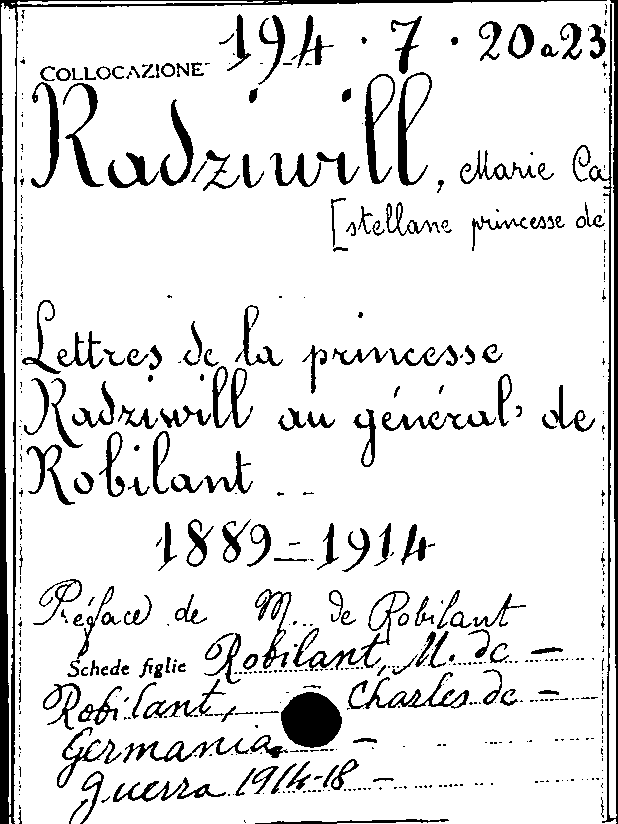 COLLOCAZIONE 194 · 7 · 20 a 23
Radziwill, Marie Ca
[stellane princesse de
Lettres de la princesse
Radziwill au général de
Robilant
1889-1914
Préface de M. de Robilant
Schede figlie Robilant, M. de -
Robilant, Charles de -
Germania -
Guerra 1914-18 -